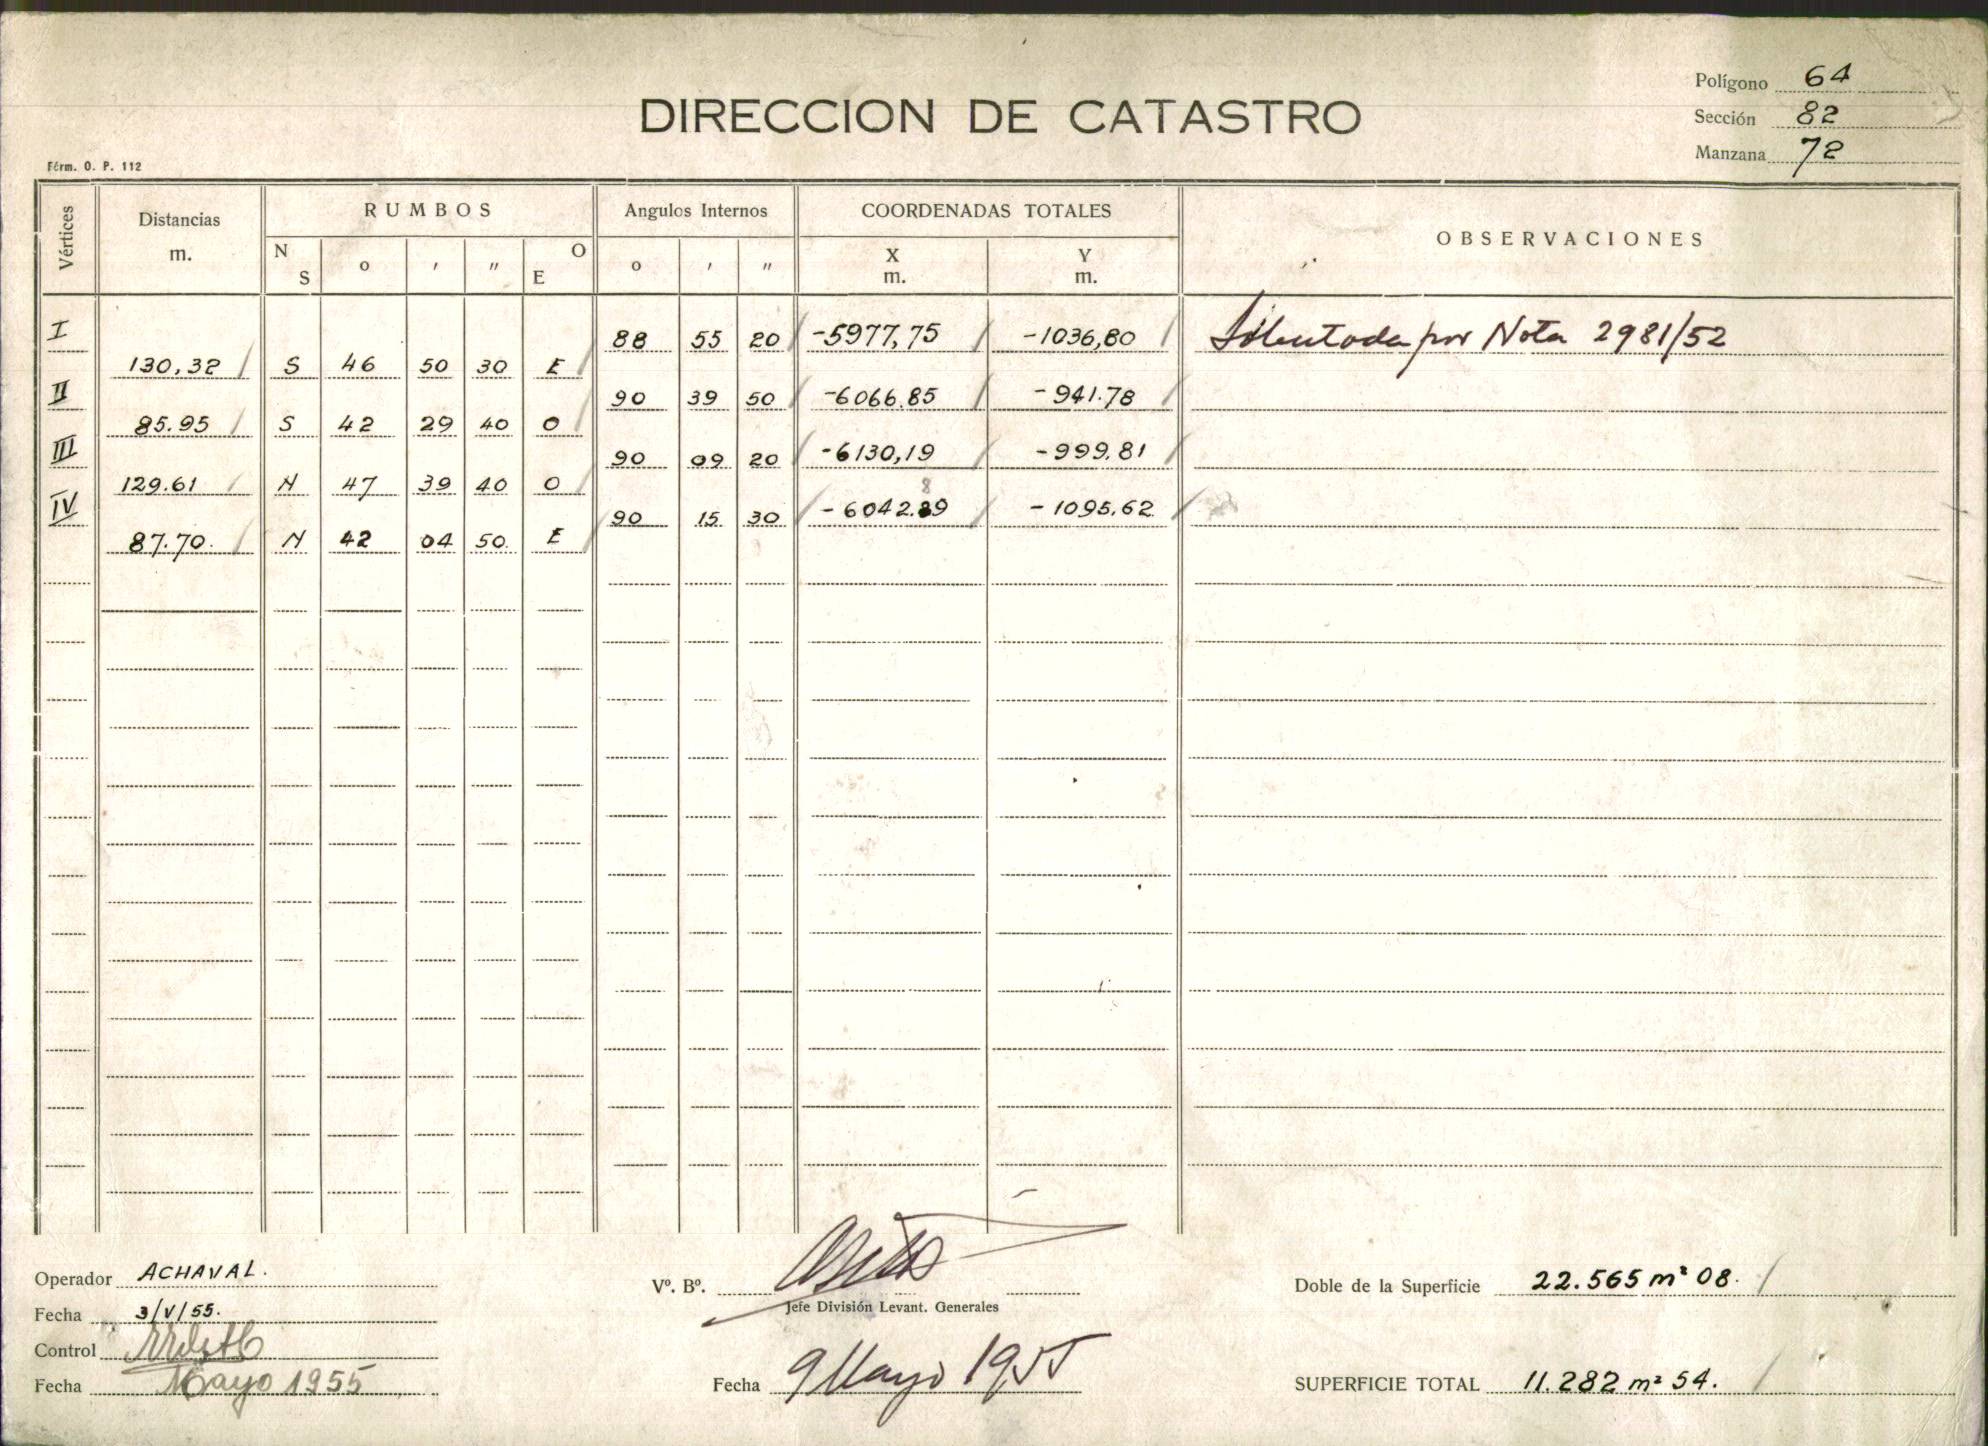 Polígono 64
DIRECCION DE CATASTRO
Sección 82
Manzana 72
Fórm. O. P. 112
Vértices Distancias m. RUMBOS N S o ' " E O Angulos Internos o ' " COORDENADAS TOTALES X m. Y m. OBSERVACIONES
I 88 55 20 -5977,75 -1036,80 por Nota 2981/52
130,32 S 46 50 30 E
II 90 39 50 -6066.85 -941.78
85.95 S 42 29 40 O
III 90 09 20 -6130,19 -999.81
129.61 N 47 39 40 O
8
IV 90 15 30 -6042.89 -1095.62
87.70. N 42 04 50. E
Operador ACHAVAL.
Vº. Bº.
Doble de la Superficie 22.565 m² 08.
Jefe División Levant. Generales
Fecha 3/V/55.
Control
Fecha Mayo 1955
Fecha 9 Mayo 1955
SUPERFICIE TOTAL 11.282 m² 54.